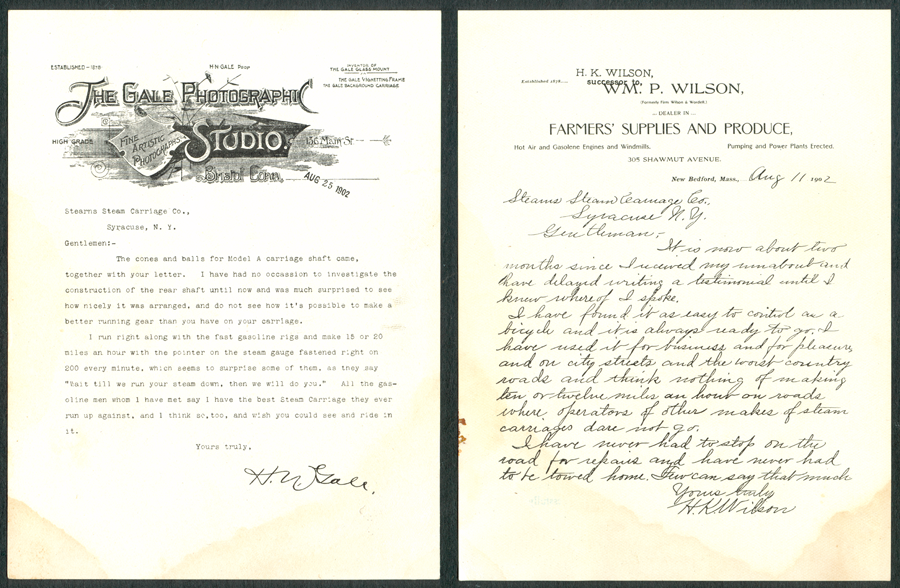 ESTABLISHED - 1878
H·N·GALE Prop
INVENTOR OF
THE GALE GLASS MOUNT
THE GALE VIGNETTING FRAME
THE GALE BACKGROUND CARRIAGE
THE GALE PHOTOGRAPHIC
HIGH GRADE
FINE
ARTISTIC
PHOTOGRAPHS
STUDIO.
136 MAIN St
Bristol Conn.
AUG 25 1902
Stearns Steam Carriage Co.,
Syracuse, N. Y.
Gentlemen:-
The cones and balls for Model A carriage shaft came,
together with your letter. I have had no occassion to investigate the
construction of the rear shaft until now and was much surprised to see
how nicely it was arranged, and do not see how it's possible to make a
better running gear than you have on your carriage.
I run right along with the fast gasoline rigs and make 15 or 20
miles an hour with the pointer on the steam gauge fastened right on
200 every minute, which seems to surprise some of them, as they say
"Wait till we run your steam down, then we will do you." All the gas-
oline men whom I have met say I have the best Steam Carriage they ever
run up against, and I think so, too, and wish you could see and ride in
it.
Yours truly,
H. N. Gale.
H. K. WILSON,
Established 1878
successor to
WM. P. WILSON,
(Formerly Firm Wilson & Wardell.)
DEALER IN
FARMERS' SUPPLIES AND PRODUCE,
Hot Air and Gasolene Engines and Windmills.
Pumping and Power Plants Erected.
305 SHAWMUT AVENUE.
New Bedford, Mass., Aug 11 1902
Stearns Steam Carriage Co.,
Syracuse N.Y.
Gentleman;-
It is now about two
months since I received my runabout and
have delayed writing a testimonial until I
knew whereof I spoke.
I have found it as easy to control as a
bicycle and it is always ready to go. I
have used it for business and for pleasure,
and on city streets and the worst country
roads and think nothing of making
ten or twelve miles an hour on roads
where operators of other makes of steam
carriages dare not go.
I have never had to stop on the
road for repairs and have never had
to be towed home. Few can say that much
Yours truly
H K Wilson